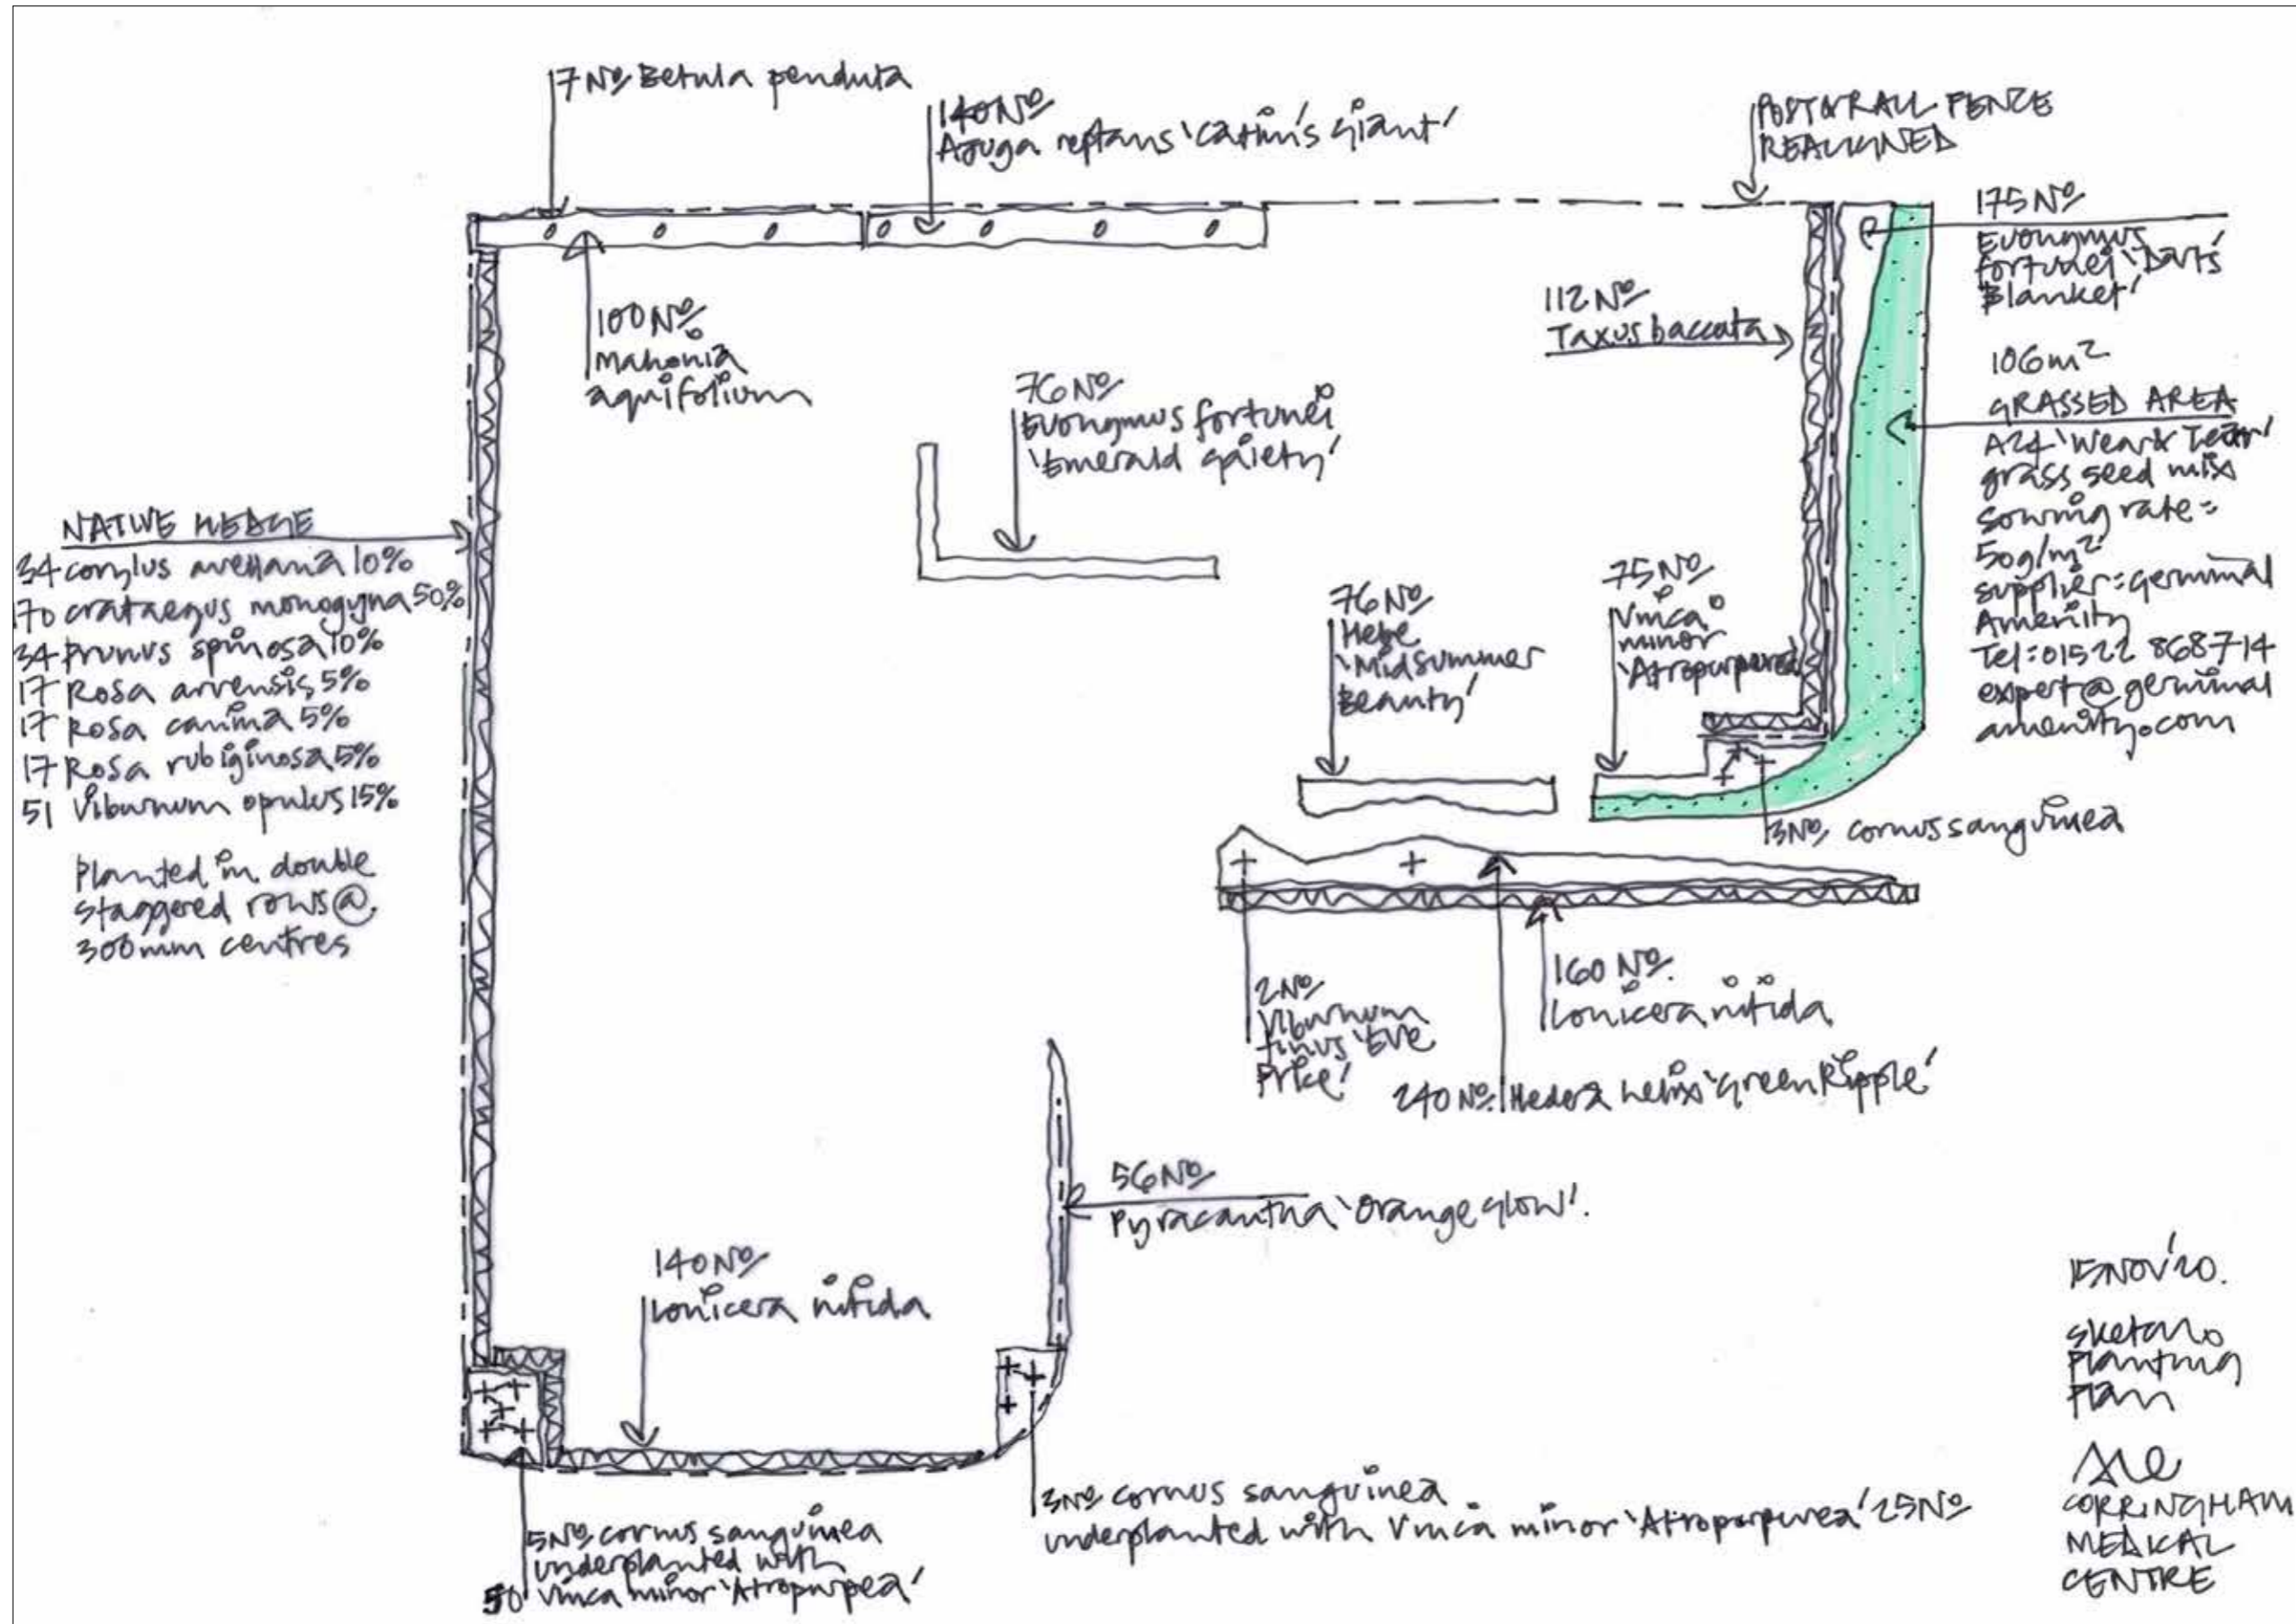 7 Nº Betula pendula
140 Nº
Ajuga reptans 'Catlin's Giant'
POST & RAIL FENCE
REALIGNED
175 Nº
Euonymus
fortunei 'Darts
Blanket'
100 Nº
Mahonia
aquifolium
112 Nº
Taxus baccata
106m²
GRASSED AREA
A24 'Wear & Tear'
grass seed mix
sowing rate =
50g/m²
supplier: germinal
Amenity
Tel: 01522 868714
expert@germinal
amenity.com
76 Nº
Euonymus fortunei
'Emerald Gaiety'
NATIVE HEDGE
34 corylus avellana 10%
170 crataegus monogyna 50%
34 Prunus spinosa 10%
17 Rosa arvensis 5%
17 Rosa canina 5%
17 Rosa rubiginosa 5%
51 Viburnum opulus 15%
Planted in double
staggered rows @
300mm centres
76 Nº
Hebe
'Midsummer
Beauty'
75 Nº
Vinca
minor
'Atropurpurea'
3 Nº cornus sanguinea
2 Nº
Viburnum
tinus 'Eve
Price'
160 Nº
Lonicera nitida
240 Nº Hedera helix 'Green Ripple'
56 Nº
Pyracantha 'Orange Glow'.
140 Nº
Lonicera nitida
5 Nº cornus sanguinea
underplanted with
50 Vinca minor 'Atropurpea'
3 Nº cornus sanguinea
underplanted with Vinca minor 'Atropurpurea' 25 Nº
15 NOV '20.
Planting
Plan
CORRINGHAM
MEDICAL
CENTRE